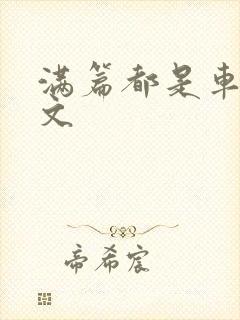 满篇都是车
文
帝希宸